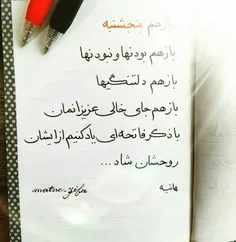 بازهم پنجشنبه
بازهم بودنها و نبودنها
بازهم دلتنگیها
بازهم جای خالی عزیزانمان
با ذکر فاتحه ای یاد کنیم از ایشان
روحشان شاد ...
هانیه
matne_ziba